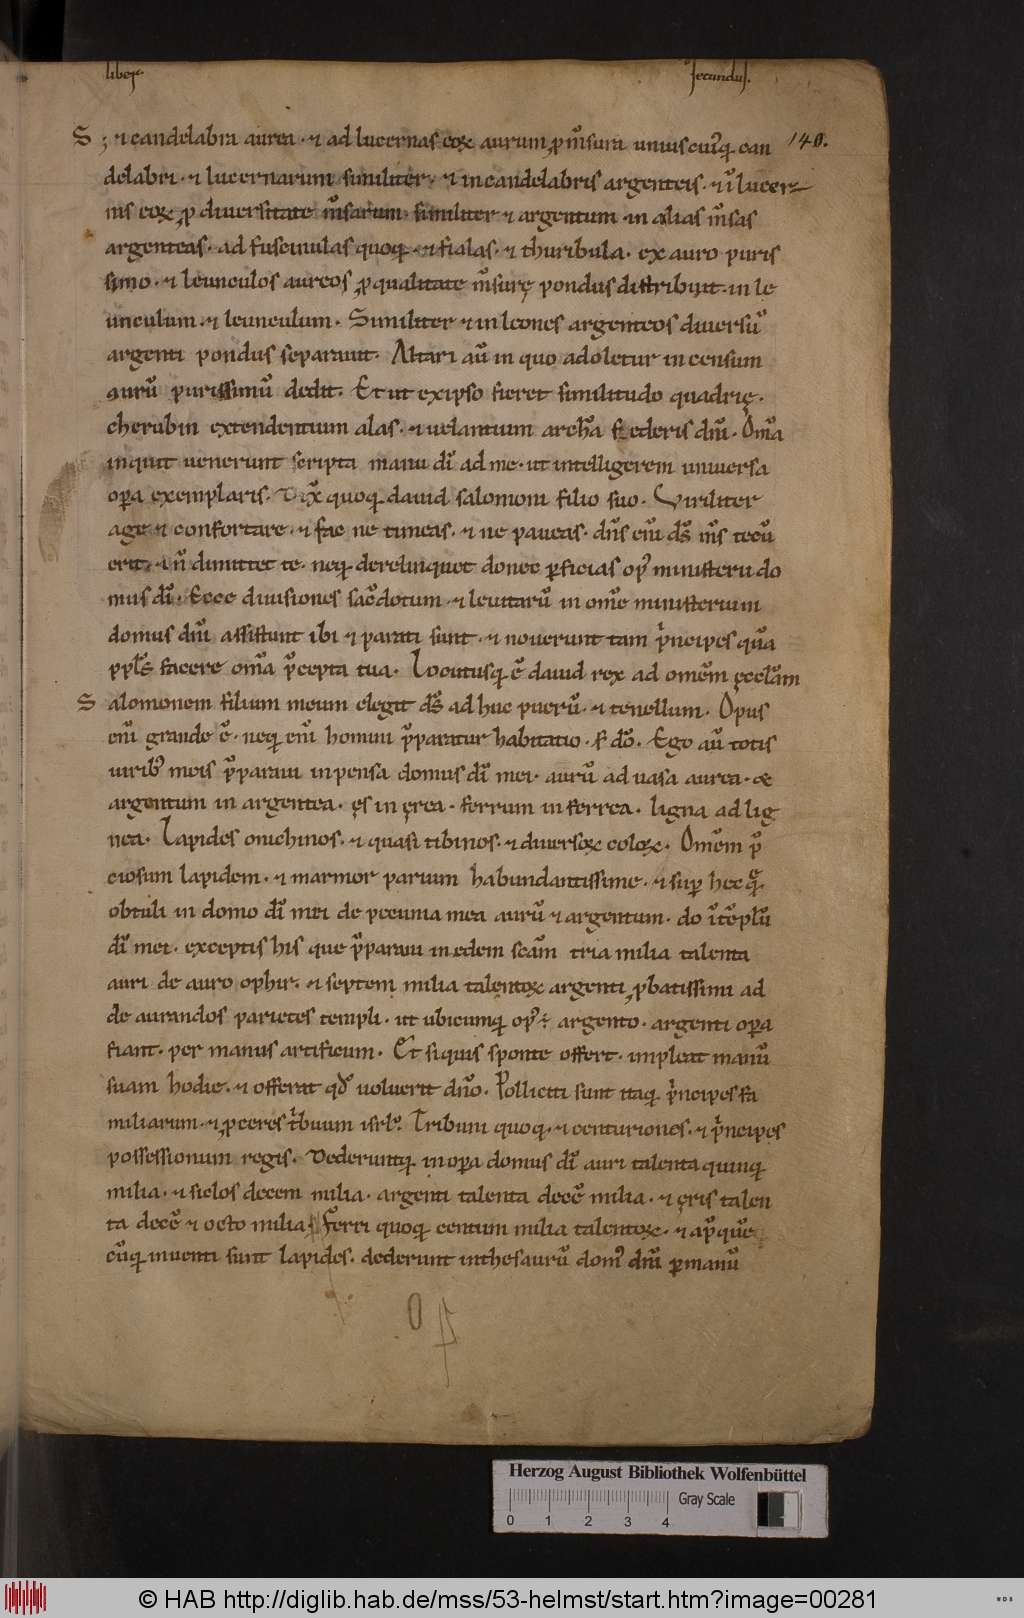 liber secundus.
140.
S; & candelabra aurea. & ad lucernas eoꝝ aurum ꝓ m̄sura uniuscuiꝰq; can
delabri. & lucernarum similiter. & in candelabris argenteis. & ī lucer
nis eoꝝ ꝓ diuersitate m̄sarum similiter & argentum in alias m̄sas
argenteas. ad fuscinulas quoq;. & fialas. & thuribula. ex auro puris
simo. & leunculos aureos ꝓ qualitate m̄surę pondus distribuit. in le
unculum. & leunculum. Similiter & in leones argenteos diuersū
argenti pondus separauit. Altari aū in quo adoletur incensum
aurū purissimū dedit. Et ut ex ipso fieret similitudo quadrię.
cherubin extendentium alas. & uelantium archā fęderis dn̄i. Om̄a
inquit uenerunt scripta manu dī ad me. ut intelligerem uniuersa
oꝑa exemplaris. Dix̄ quoq; dauid salomoni filio suo. Viriliter
age & confortare. & fac ne timeas. & ne paueas. dn̄s em̄ ds̄ m̄s tecū
erit. & n̄ dimittet te. neq; derelinquet donec ꝑficias opꝰ ministerii do
mus dī. Ecce diuisiones sac̄dotum & leuitarū in om̄e ministerium
domus dn̄i assistunt ibi & parati sunt. & nouerunt tam pͥncipes quā
ppl̄s facere om̄a p̄cepta tua. Locutusq; ē dauid rex ad omēm ęccl̄am
Salomonem filium meum elegit ds̄ adhuc puerū. & tenellum. Opus
em̄ grande ē. neq; em̄ homini p̄paratur habitatio. s; dō. Ego aū totis
uiribꝰ meis p̄paraui inpensa domus dī mei. aurū ad uasa aurea. &
argentum in argentea. ęs in ęrea. ferrum in ferrea. ligna ad lig
nea. Lapides onichinos. & quasi tibinos. & diuersoꝝ coloꝝ. Omēm p̄
ciosum lapidem. & marmor parium habundantissime. & suꝑ hec q̨̄.
obtuli in domo dī mei de pecunia mea aurū & argentum. do ī tēplū
dī mei. exceptis his que p̄paraui in edem scām tria milia talenta
auri de auro ophir. & septem milia talentoꝝ argenti ꝓbatissimi ad
de aurandos parietes templi. ut ubicumq; opꝰ ÷ argento. argenti oꝑa
fiant. per manus artificum. Et siquis sponte offert. impleat manū
suam hodie. & offerat qđ uoluerit dn̄o. Polliciti sunt itaq; pͥncipes fa
miliarum. & ꝓceres tͥbuum isrl̄. Tribuni quoq;. & centuriones. & pͥncipes
possessionum regis. Dederuntq; in oꝑa domus dī auri talenta quinq;
milia. & siclos decem milia. argenti talenta decē milia. & ęris talen
ta decē & octo milia. Ferri quoq; centum milia talentoꝝ. & apꝰquē
cūq; inuenti sunt lapides. dederunt in thesaurū domꝰ dn̄i ꝑ manū
Herzog August Bibliothek Wolfenbüttel
Gray Scale
0 1 2 3 4
© HAB http://diglib.hab.de/mss/53-helmst/start.htm?image=00281